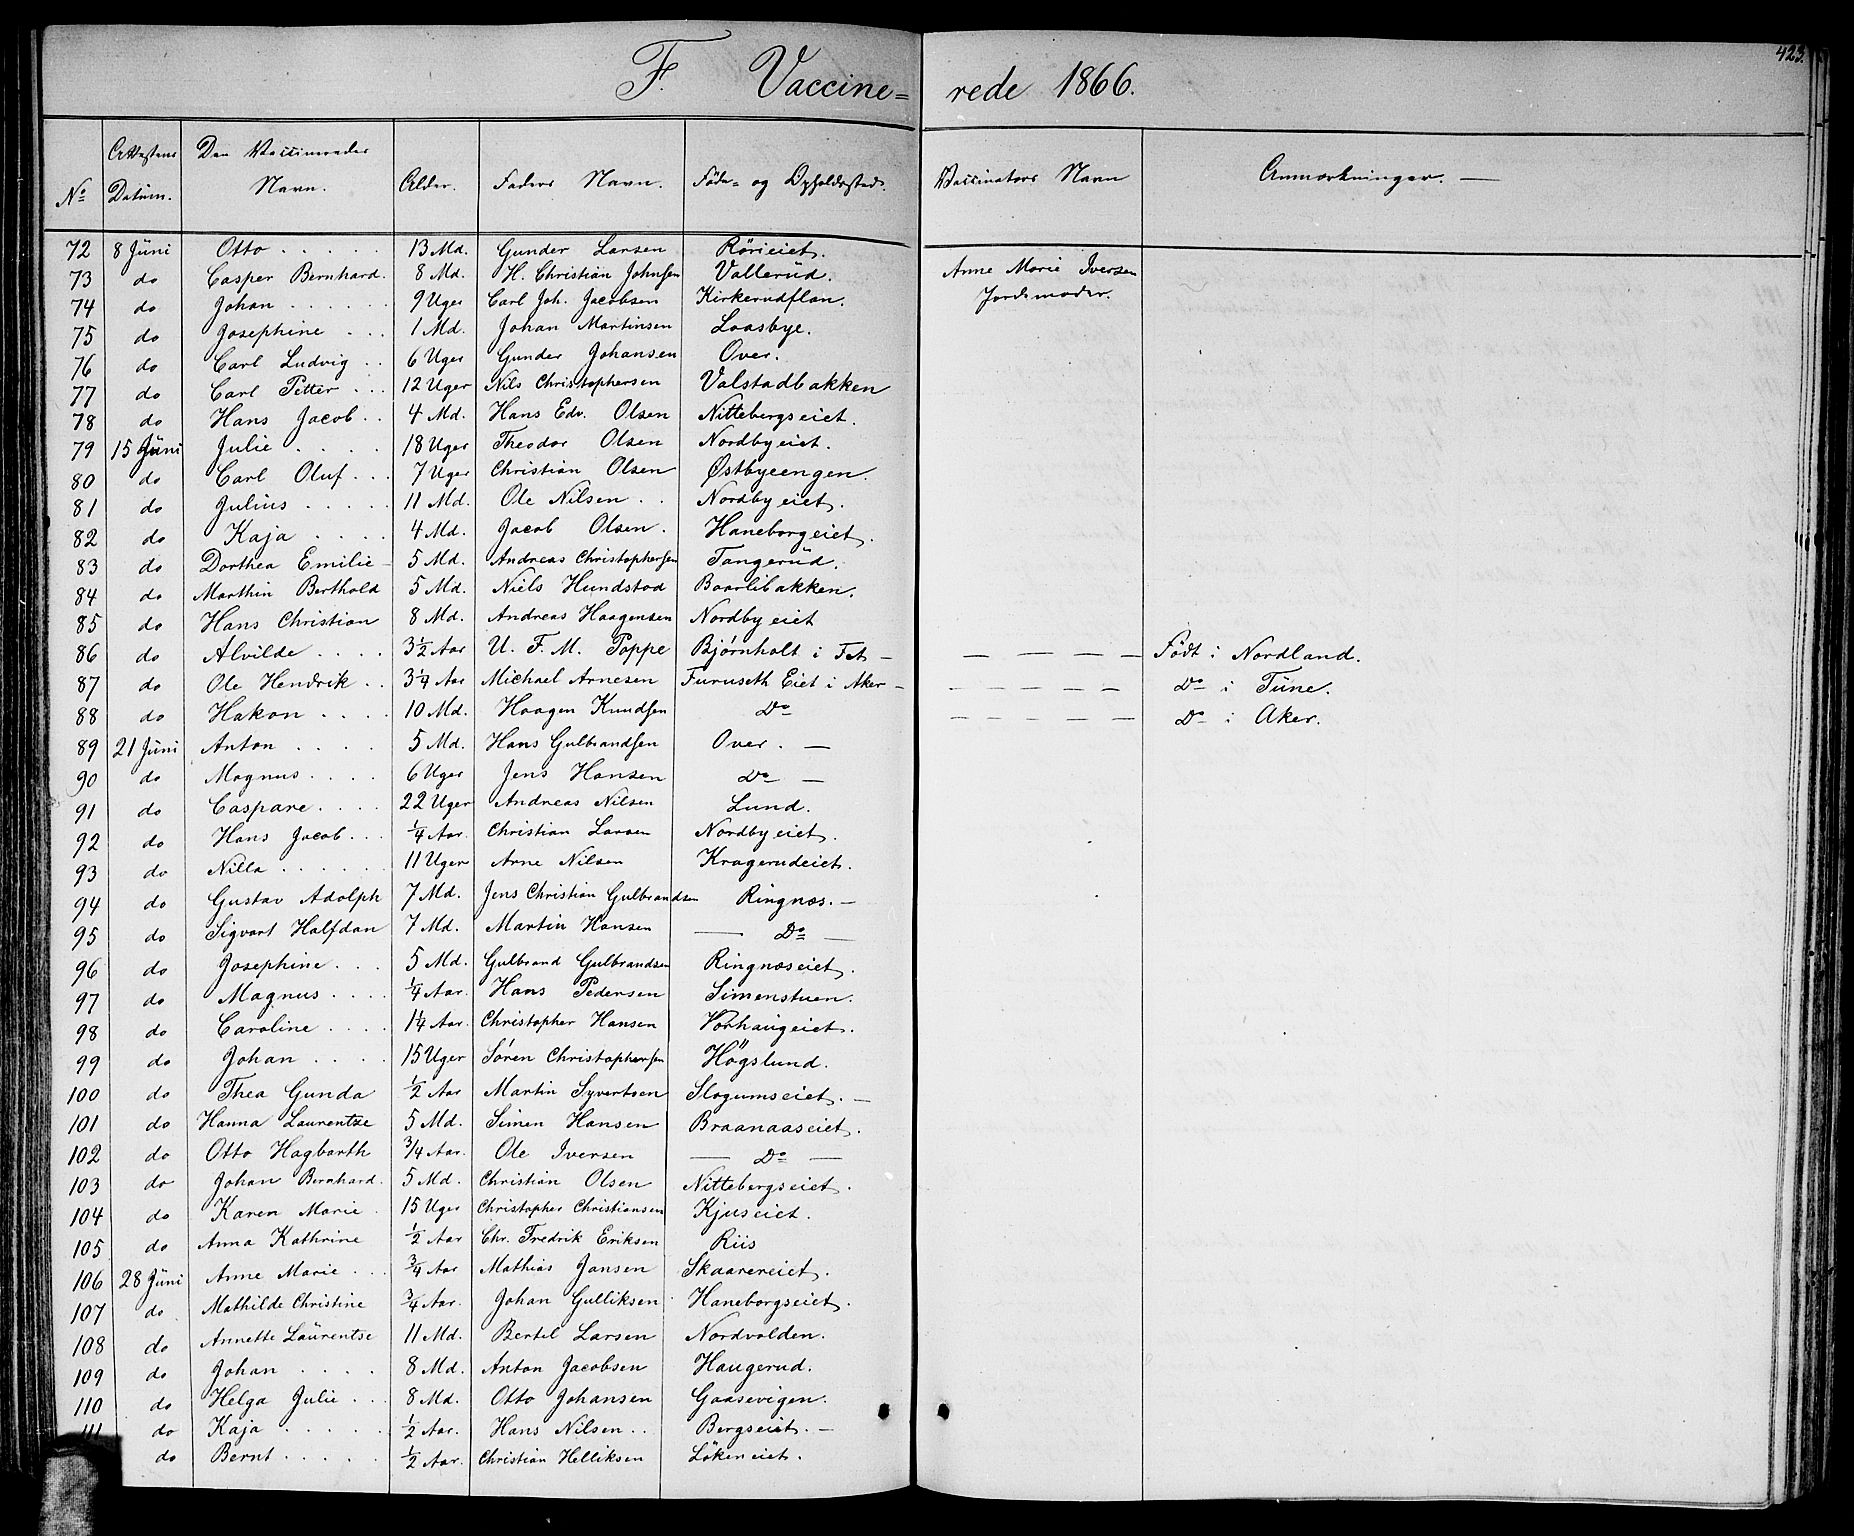 423.
F. Vaccine= rede 1866.
No Attestens Datum. Den Vaccineredes Navn. Alder. Faders Navn. Føde- og Opholdssted. Vaccinatørs Navn Anmærkninger. —
72 8 Juni Otto . . . . 13 Md. Gunder Larsen Rørieiet. Anne Marie Iversen
73 do Casper Bernhard. 8 Md. H. Christian Johnsen Vallerud. Jordemoder.
74 do Johan . . . . 9 Uger Carl Joh. Jacobsen Kirkerudflan.
75 do Josephine . . . 1 Md. Johan Martinsen Loasbye.
76 do Carl Ludvig . . 6 Uger Gunder Johansen Over.
77 do Carl Petter . . . 12 Uger Nils Christophersen Valstadbakken
78 do Hans Jacob . . 4 Md. Hans Edv. Olsen Nittebergseiet.
79 15 Juni Julie . . . . 18 Uger Theodor Olsen Nordbyeiet.
80 do Carl Oluf . . . 7 Uger Christian Olsen Østbyeengen.
81 do Julius . . . . . 11 Md. Ole Nilsen . . Nordbyeiet.
82 do Kaja . . . . 4 Md. Jacob Olsen . Haneborgeiet.
83 do Dorthea Emilie 5 Md. Andreas Christophersen Tangerud.
84 do Marthin Berthold 5 Md. Niels Hundstad Baarlibakken.
85 do Hans Christian 8 Md. Andreas Haagensen Nordbyeiet
86 do Alvilde . . . . 3½ Aar U. F. M. Poppe Bjørnholt i Fet — — — — — Født i Nordland.
87 do Ole Hendrik . . 3¼ Aar Michael Arnesen Furuseth Eiet i Aker — — — — — — Do i Tune.
88 do Hakon . . . . 10 Md. Haagen Knudsen Do — — — — — Do i Aker.
89 21 Juni Anton . . . . 5 Md. Hans Gulbrandsen Over. —
90 do Magnus . . . . 6 Uger Jens Hansen Do —
91 do Caspare . . . . 22 Uger Andreas Nilsen Lund.
92 do Hans Jacob . . . ¼ Aar. Christian Larsen Nordbyeiet.
93 do Nilla . . . . . . 11 Uger Arne Nilsen Kragerudeiet.
94 do Gustav Adolph 7 Md. Jens Christian Gulbrandsen Ringnæs. —
95 do Sigvart Halfdan 7 Md. Martin Hansen — Do —
96 do Josephine . . . 5 Md. Gulbrand Gulbrandsen Ringnæseiet.
97 do Magnus . . . . ¼ Aar. Hans Pedersen Simenstuen.
98 do Caroline . . . . 1¼ Aar. Christopher Hansen Vorhaugeiet.
99 do Johan . . . . 15 Uger Søren Christophersen Högslund.
100 do Thea Gunda ½ Aar Martin Syvertsen Slogumseiet. —
101 do Hanna Laurentze 5 Md. Simen Hansen Braanaaseiet.
102 do Otto Hagbarth ¾ Aar. Ole Iversen — Do —
103 do Johan Bernhard. 5 Md. Christian Olsen Nittebergseiet.
104 do Karen Marie . 15 Uger Christopher Christiansen Kjuseiet.
105 do Anna Kathrine ½ Aar Chr. Fredrik Eriksen Riis
106 28 Juni Anne Marie . . . ¾ Aar Mathias Jansen Skaarereiet.
107 do. Mathilde Christine ¾ Aar. Johan Gulliksen Haneborgseiet.
108 do Annette Laurentse 11 Md. Bertel Larsen Nordvolden.
109 do Johan . . . . . 8 Md. Anton Jacobsen Haugerud.
110 do Helga Julie . . . 8 Md. Otto Johansen Gaasevigen.
111 do Kaja . . . . . ½ Aar. Hans Nilsen . . Bergseiet. —
do Bernt . . . . . ½ Aar. Christian Helliksen Løkeneiet.